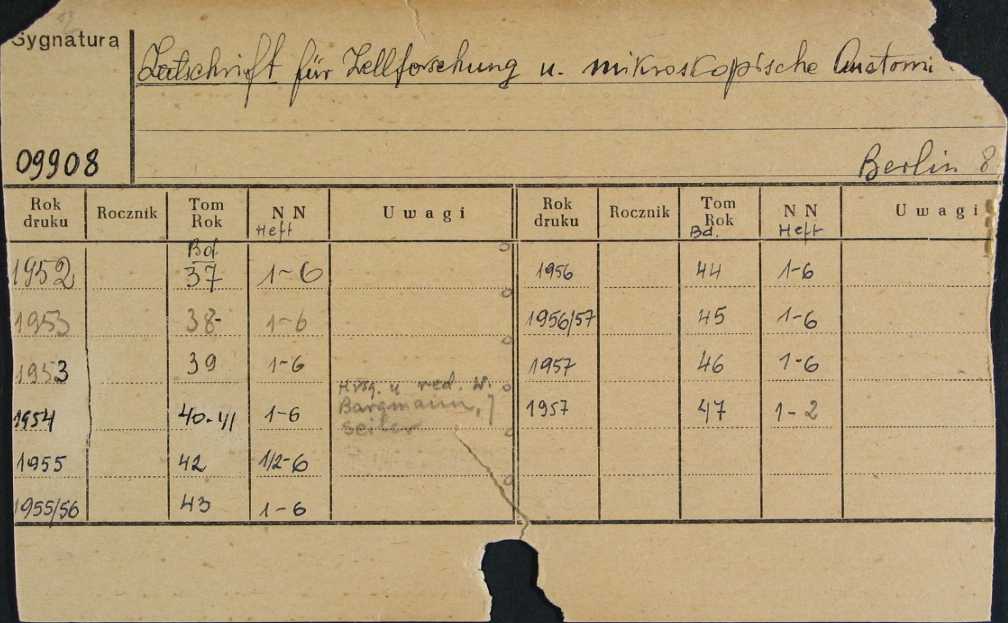 Sygnatura
Zeitschrift für Zellforschung u. mikroskopische Anatomi
09908
Berlin 8
Rok druku Rocznik Tom Rok N N Uwagi Rok druku Rocznik Tom Rok N N Uwagi
Heft Bd. Heft
Bd
1952 37 1-6 1956 44 1-6
1953 38- 1-6 1956/57 45 1-6
1953 39 1-6 1957 46 1-6
Hrsg. u red. W.
Bargmann, J
Seiler
1954 40-41 1-6 1957 47 1-2
1955 42 1/2-6
1955/56 43 1-6